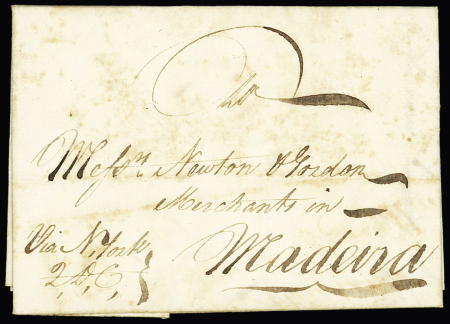 To
Messrs. Newton & Gordon
Merchants in
Madeira
Via N. York
2, D, C,